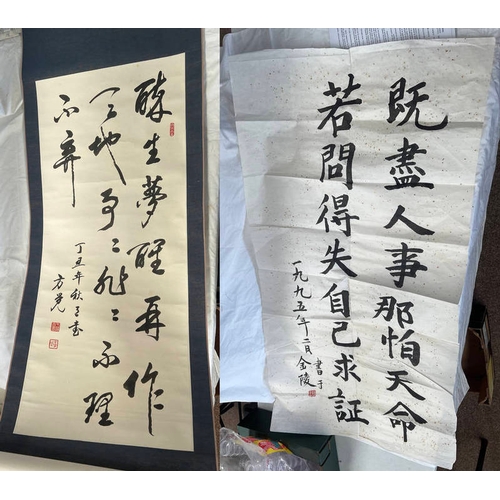 醉生夢醒再作
天地事〻非〻不理
不弃
丁丑年秋月書
既盡人事那怕天命
若問得失自己求証
一九九五年二月書于
金陵